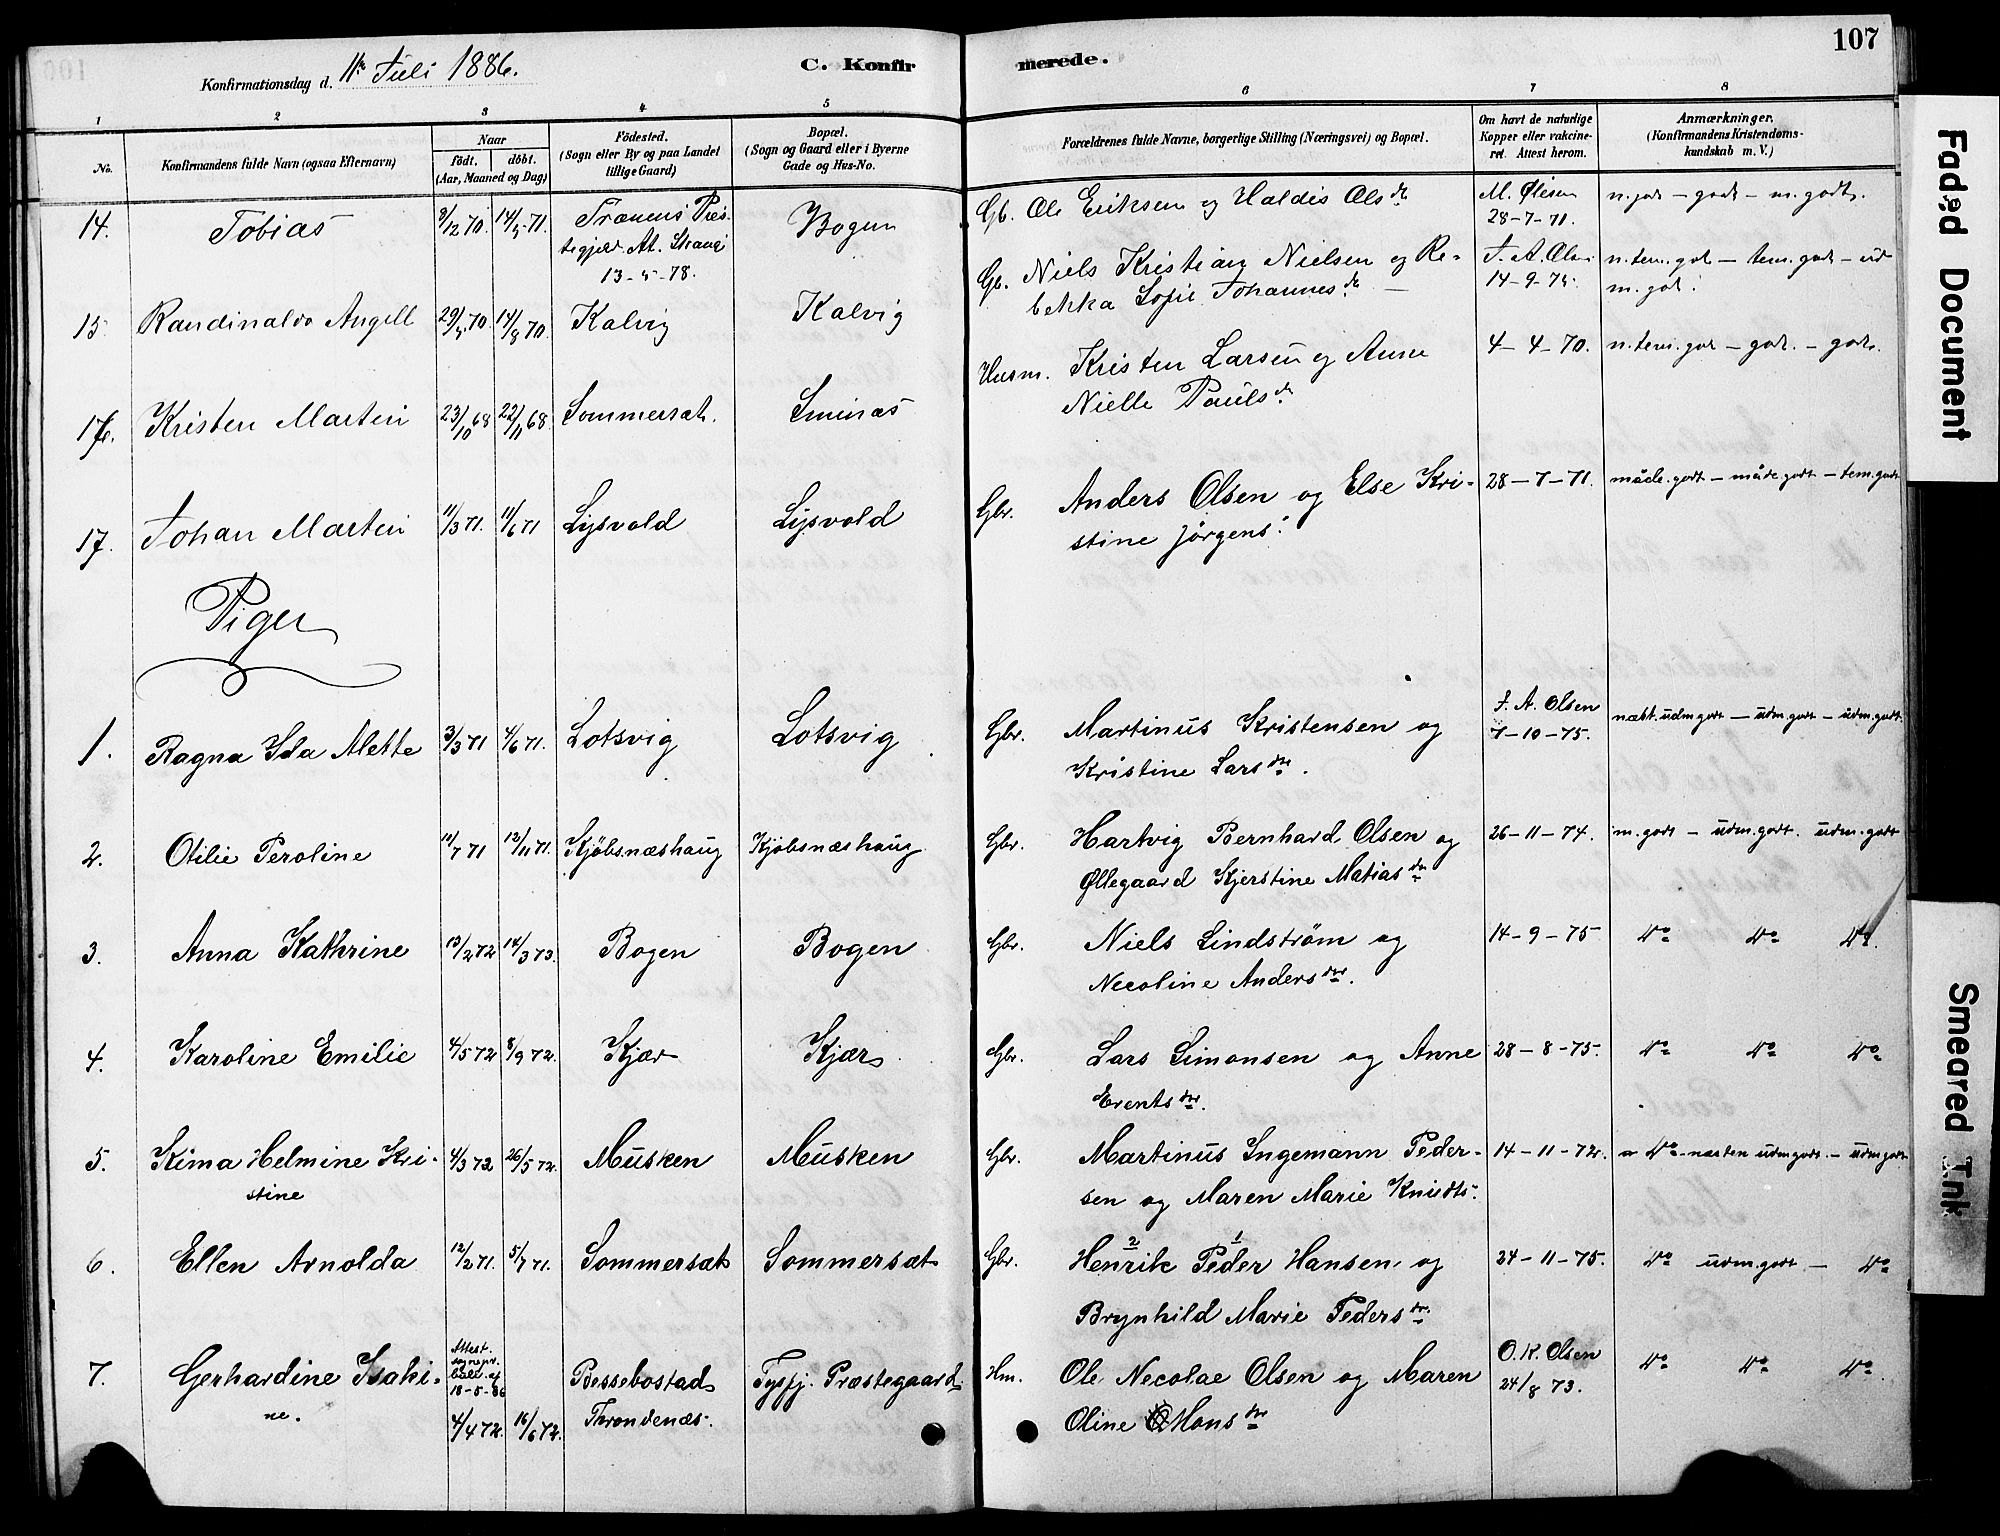 107
Konfirmationsdag d. 11te Juli 1886.
C. Konfirmerede.
1 2 3 4 5 6 7 8
No.
Konfirmandens fulde Navn (ogsaa Efternavn)
Naar
födt. döbt.
(Aar, Maaned og Dag)
Födested.
(Sogn eller By og paa Landet
tillige Gaard)
Bopæl.
(Sogn og Gaard eller i Byerne
Gade og Hus-No.
Forældrenes fulde Navne, borgerlige Stilling (Næringsvei) og Bopæl.
Om havt de naturlige
Kopper eller vakcine-
ret. Attest herom.
Anmærkninger.
(Konfirmandens Kristendoms-
kundskab m. V.)
14. Tobias 8/12 70. 14/5 71. Trænens Præs- Bogen Gb. Ole Eriksen og Haldis Olsdr M. Olsen n. godt - godt - m. godt.
tegjeld At.
13-5-78. 28-7-71.
15 Randinaldo Angell 29/5 70 14/8 70. Kalvig Kalvig Gb. Niels Kristian Nielsen og Re- J. A. Olsen n. tem. godt - tem. godt - ud
bekka Sofie Johannesdr 14-9-75. m. godt.
16. Kristen Martin 23/10 68 22/11 68. Sommersæt. Husm. Kristen Larsen og Anne 4-4-70. n. tem. godt - godt - godt.
Nielle Paulsdr
17. Johan Martin 11/3 71. 11/6 71 Lysvold Lysvold Gbr. Anders Olsen og Else Kri- 28-7-71. måde. godt - måde godt - tem. godt
stine Jörgens.
Piger
1. Ragna Ida Mette 3/3 71 4/6 71. Lotsvig Lotsvig Gbr. Martinus Kristensen og J. A. Olsen næst. udm godt - udm. godt - udm. godt.
Kristine Larsdtr. 7-10-75.
2. Otilie Peroline 11/7 71 12/11 71. Kjöbsnæshaug Kjöbsnæshaug Gbr. Hartvig Bernhard Olsen og 26-11-74. m. godt - udm. godt. udm. godt
Øllegaard Kjerstine Matiasdtr
3. Anna Kathrine 13/2 72 14/3 73. Bogen Bogen Gbr. Niels Lindström og 14-9-75 Do Do Do.
Necoline Andersdtr.
4. Karoline Emilie 4/5 72 8/9 72. Kjær Kjær Gbr. Lars Simonsen og Anne 28-8-75. Do Do Do
Erentsdtr.
5. Kima Helmine Kri- 4/3 72 26/5 72. Musken Musken Gbr. Martinus Ingemann Peder- 14-11-72. Do - næsten udm godt. - udm godt
stine sen og Maren Marie Knudts.
6. Ellen Arnolda 12/2 71. 5/7 71. Sommersæt Sommersæt Gbr. Henrik 2 Peder 1 Hansen og 24-11-75. Do udm. godt - Do
Brynhild Marie Pedersdtr.
7. Gerhardine Isaki- Attest. Bessebostad Tysfj. Præstegaard. Hm. Ole Necolae Olsen og Maren O. K. Olsen Do Do Do
18-5-86
ne. 4/4 72. 16/6 72. Throndenæs. Oline Monsdtr 24/8 73.
Faded Document
Smeared Ink